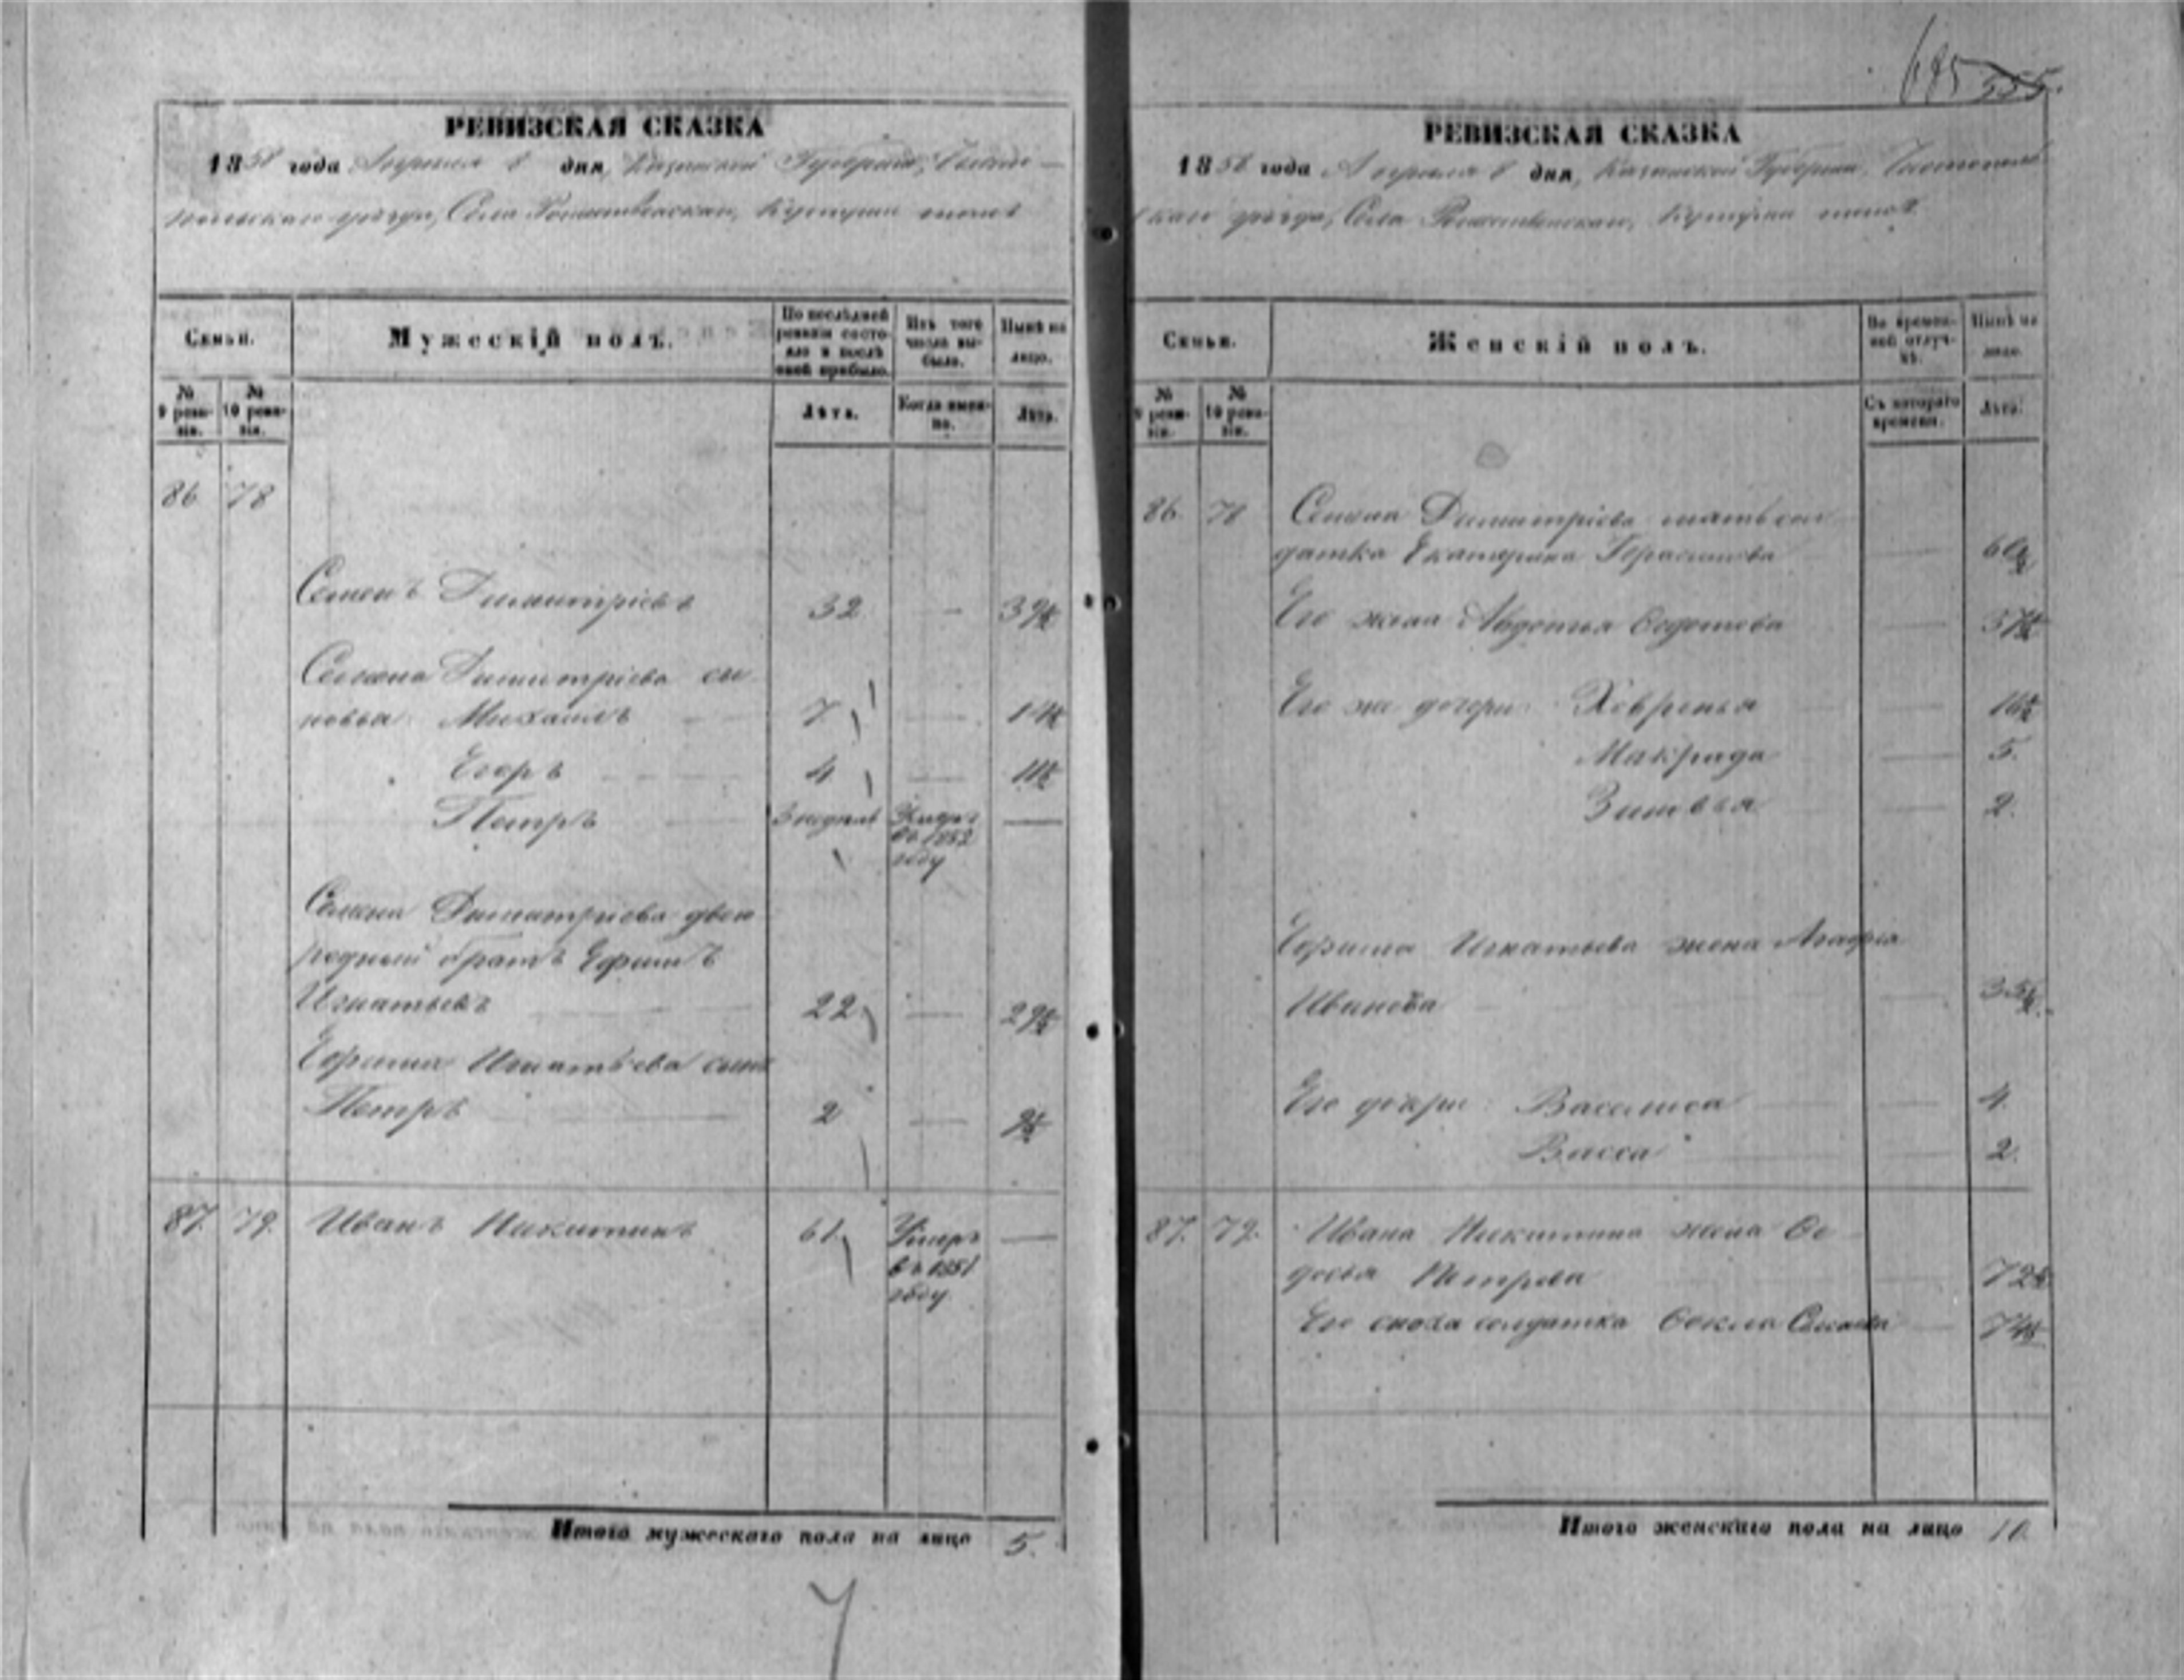 685 555.
РЕВИЗСКАЯ СКАЗКА
1858 года Апреля 8 дня, Казанской Губерніи, Чисто-
польскаго уѣзда, Села Рождественскаго, Кутуши тожъ
Семьи.
Мужескій полъ.
По послѣдней ревизіи состояло и послѣ оной прибыло.
Изъ того числа выбыло.
Нынѣ на лицо.
№ 9 ревизіи.
№ 10 ревизіи.
Лѣта.
Когда именно.
Лѣта.
86. 78
Семенъ Димитріевъ 32 — 39½
Семена Димитріева сы-
новья: Михаилъ 7 — 14½
Егоръ 4 — 11½
Петръ 3 недѣль Умеръ въ 1852 году —
Семена Димитріева двою
родный братъ Ефимъ
Игнатьевъ 22 — 29½
Ефима Игнатьева сынъ
Петръ 2 — 9½
87. 79. Иванъ Никитинъ 61. Умеръ въ 1851 году —
Итого мужескаго пола на лицо 5.
РЕВИЗСКАЯ СКАЗКА
1858 года Апреля 8 дня, Казанской Губерніи, Чистополь
скаго уѣзда, Села Рождественскаго, Кутуши тожъ.
Семьи.
Женскій полъ.
Во временной отлучкѣ.
Нынѣ на лицо.
№ 9 ревизіи.
№ 10 ревизіи.
Съ котораго времени.
Лѣта.
86. 78 Семена Димитріева мать сол
датка Екатерина Герасимова — 60½
Его жена Авдотья Ѳедотова — 37½
Его же дочери: Ховронья — 16½
Макрида — 5.
Зиновья — 2.
Ефима Игнатьева жена Агафья
Иванова — 35½.
Его дочери: Василиса — 4.
Васса — 2.
87. 79. Ивана Никитина жена Ѳе
досья Петрова 72½
Его сноха солдатка Ѳекла — 74½
Итого женскаго пола на лицо 10.